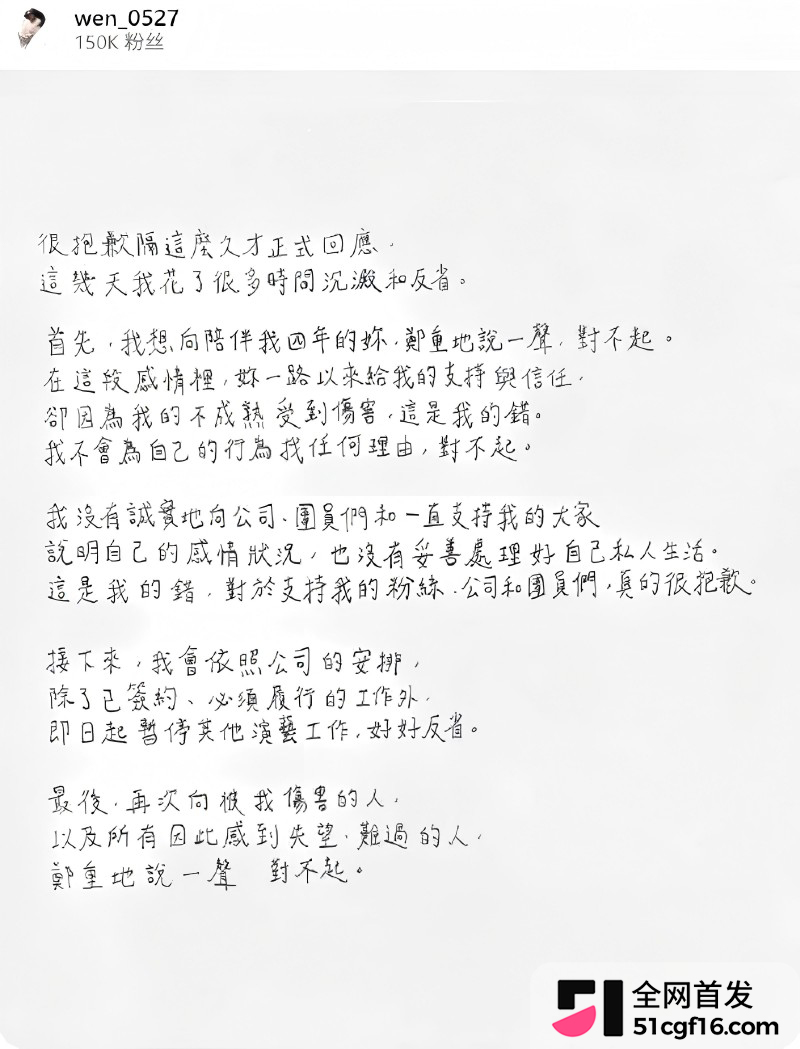 wen_0527
150K 粉丝
很抱歉隔這麼久才正式回應，
這幾天我花了很多時間沉澱和反省。
首先，我想向陪伴我四年的妳，鄭重地說一聲，對不起。
在這段感情裡，妳一路以來給我的支持與信任，
卻因為我的不成熟受到傷害，這是我的錯。
我不會為自己的行為找任何理由，對不起。
我沒有誠實地向公司、團員們和一直支持我的大家
說明自己的感情狀況，也沒有妥善處理好自己私人生活。
這是我的錯，對於支持我的粉絲、公司和團員們，真的很抱歉。
接下來，我會依照公司的安排，
除了已簽約、必須履行的工作外，
即日起暫停其他演藝工作，好好反省。
最後，再次向被我傷害的人，
以及所有因此感到失望、難過的人，
鄭重地說一聲 對不起。
全网首发
51cgf16.com